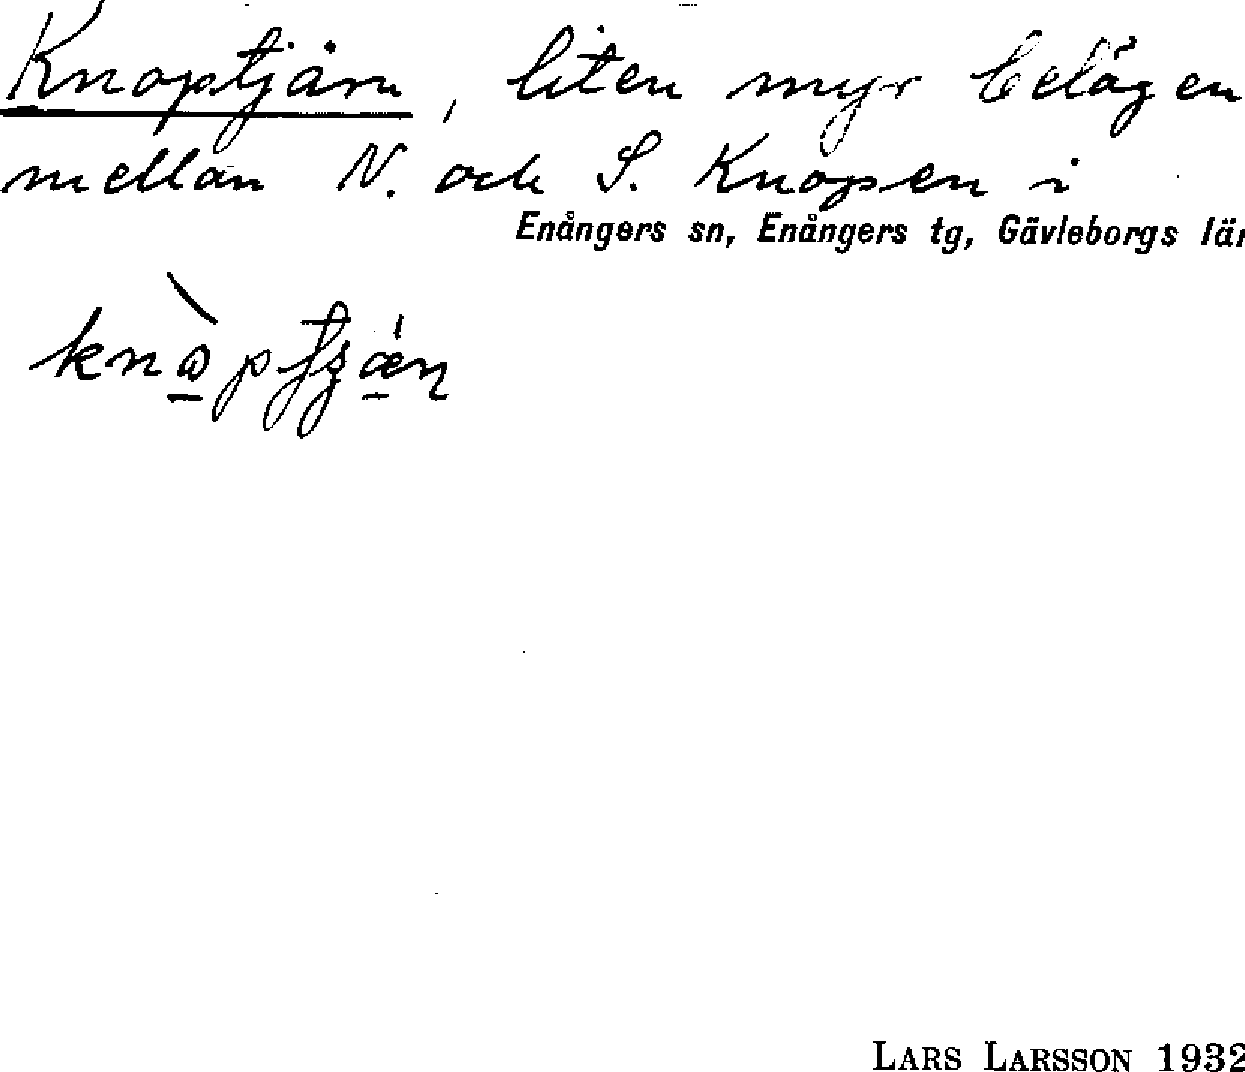 Knoptjärn, liten myr belägen
mellan N. och S. Knopen i
Enångers sn, Enångers tg, Gävleborgs län
LARS LARSSON 1932